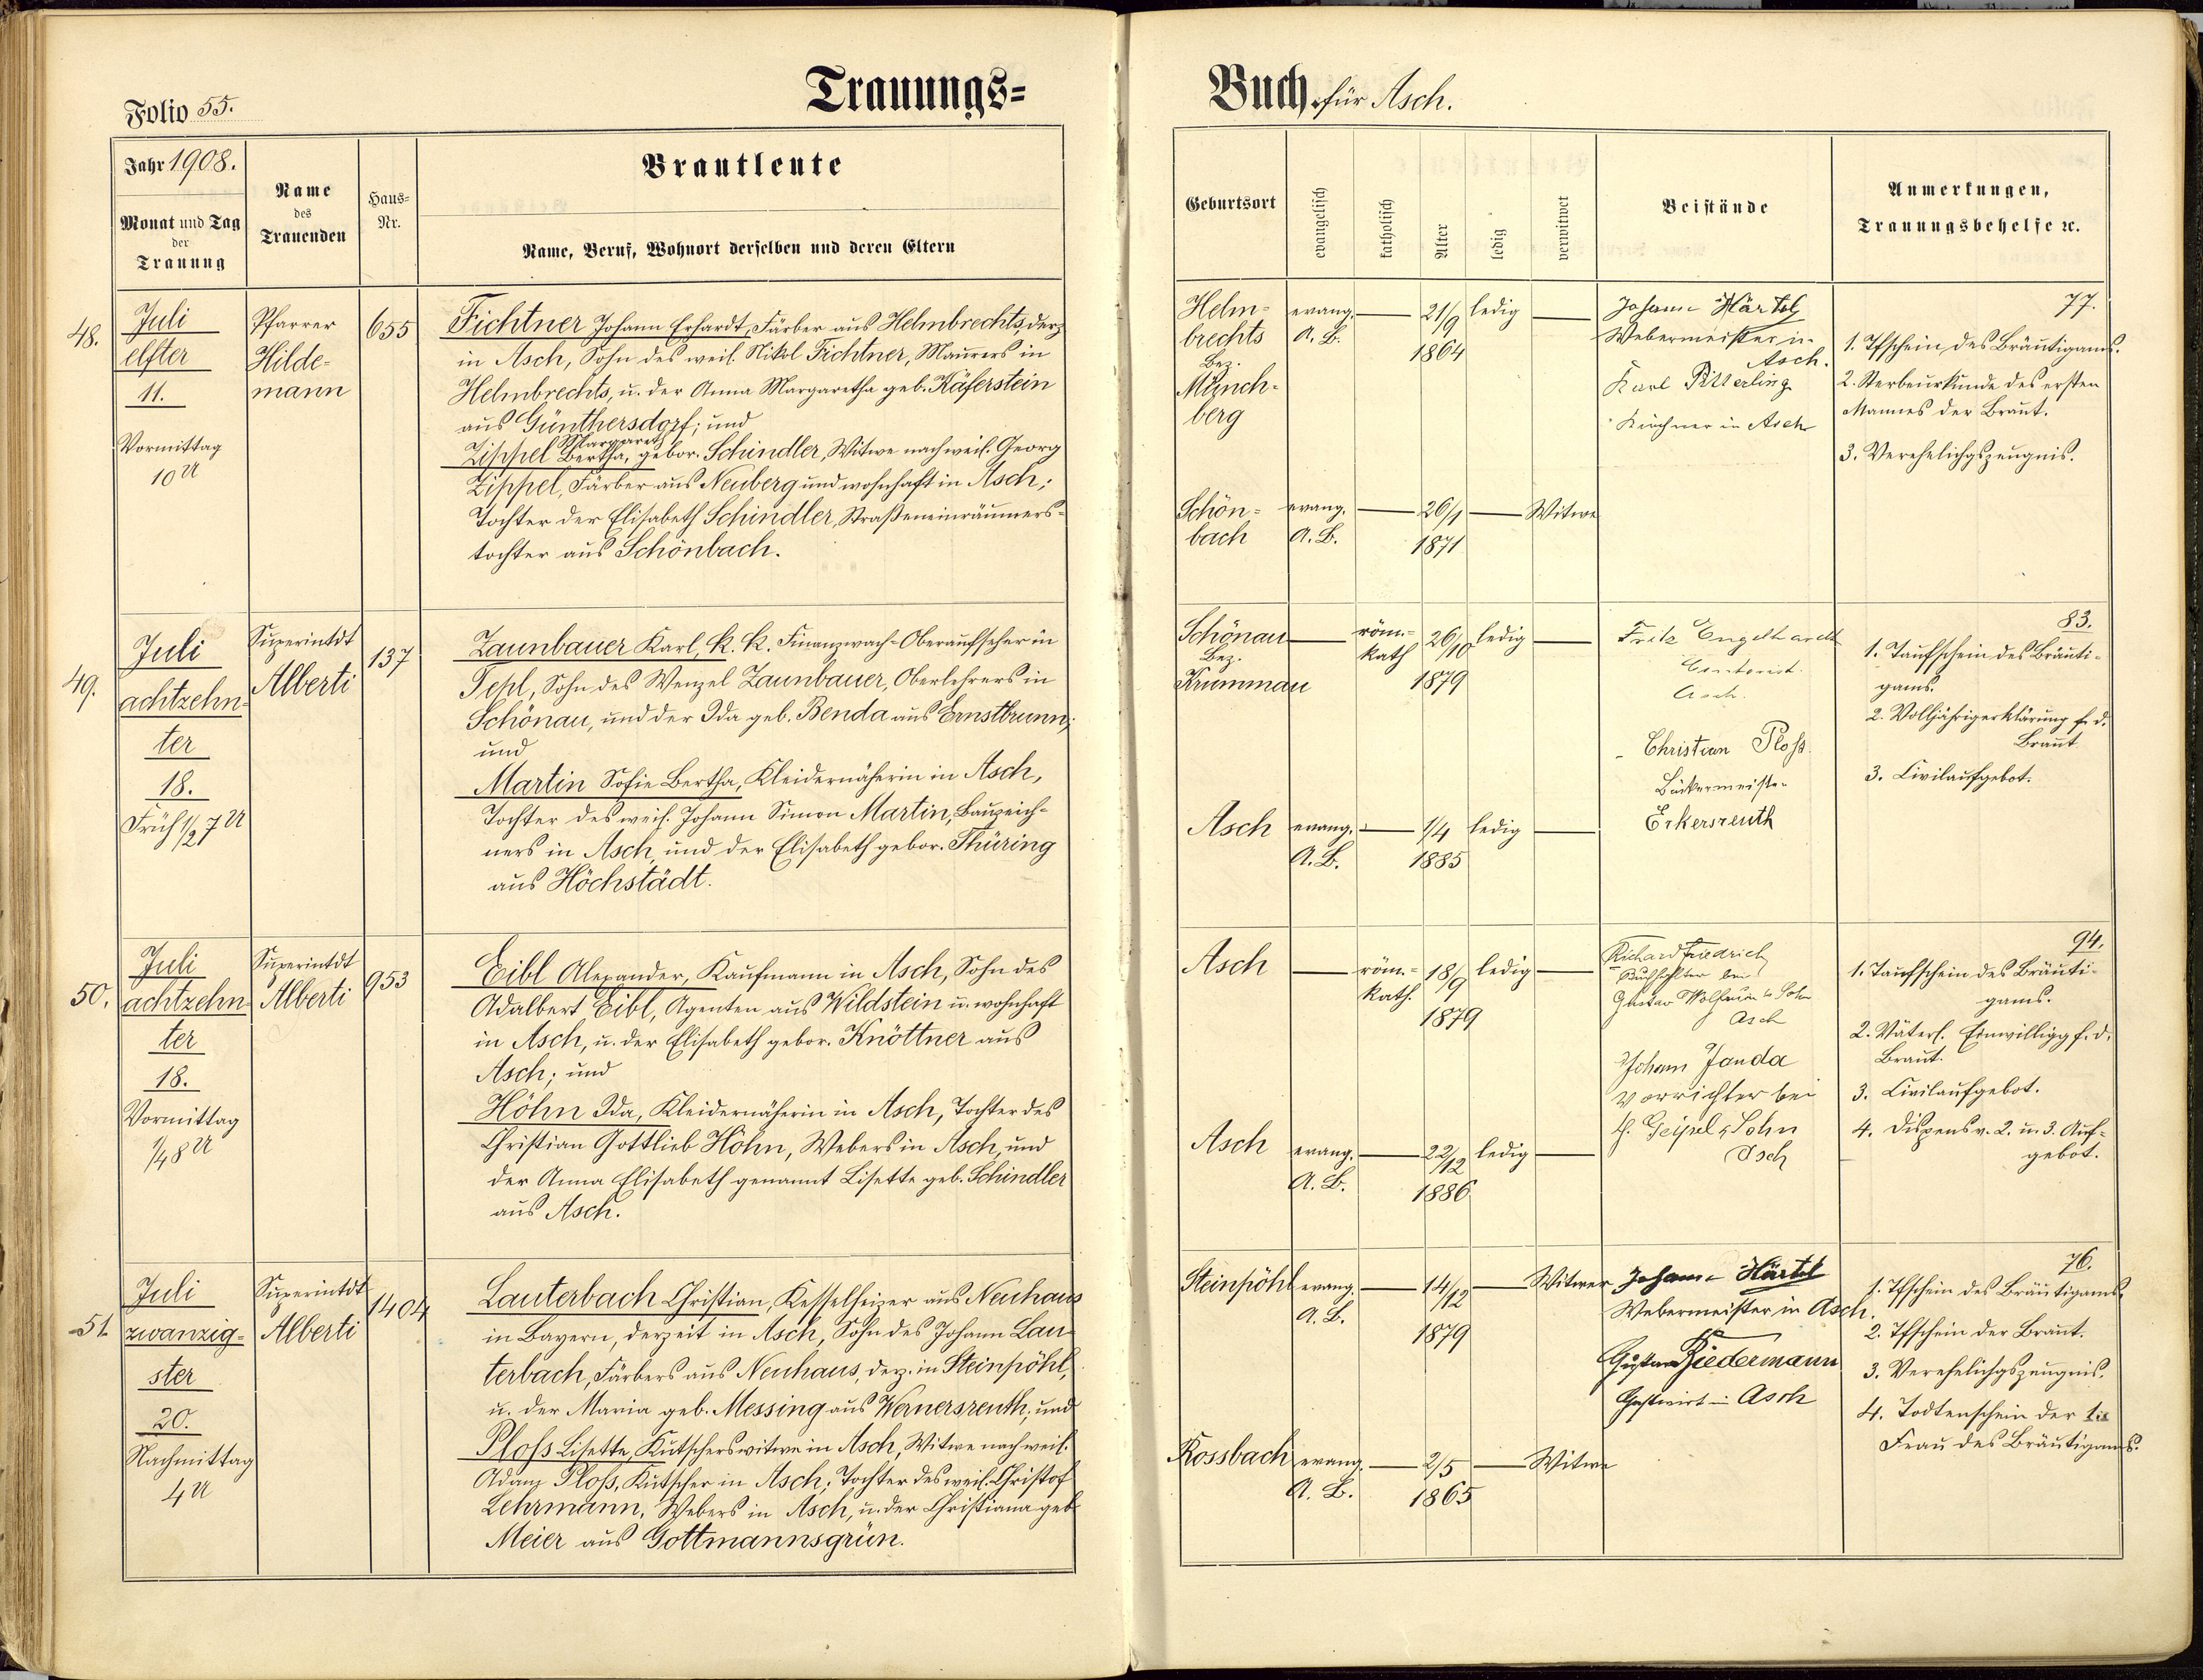 Folio 55.
Trauungs-
Buch für Asch.
Jahr 1908.
Monat und Tag
der
Trauung
Name
des
Trauenden
Haus-
Nr.
Brautleute
Name, Beruf, Wohnort derselben und deren Eltern
Geburtsort
evangelisch
katholisch
Alter
ledig
verwitwet
Beistände
Anmerkungen,
Trauungsbehelfe ꝛc.
48.
Juli
elfter
11.
Vormittag
10 U
Pfarrer
Hilde-
mann
655
Fichtner Johann Erhardt, Färber aus Helmbrechts, derz.
in Asch, Sohn des weil. Nikol Fichtner, Maurers in
Helmbrechts, u. der Anna Margaretha geb. Käferstein
aus Günthersdorf; und
Margareth
Zippel Bertha, gebor. Schindler, Witwe nach weil. Georg
Zippel, Färber aus Neuberg und wohnhaft in Asch;
Tochter der Elisabeth Schindler, Straßeneinräumers-
tochter aus Schönbach.
Helm-
brechts
Bez.
Münch-
berg
evang.
A. B.
21/9
1864
ledig
Schön-
bach
evang.
A. B.
26/1
1871
Witwe
Johann Härtel
Webermeister in
Asch.
Karl Pitterling
Kirchner in Asch
77.
1. Tfschein des Bräutigams.
2. Sterbeurkunde des ersten
Mannes der Braut.
3. Verehelichgszeugnis.
49.
Juli
achtzehn-
ter
18.
Früh 1/2 7 U
Superintdt
Alberti
137
Zaunbauer Karl, k. k. Finanzwach-Oberaufseher in
Tepl, Sohn des Wenzel Zaunbauer, Oberlehrers in
Schönau, und der Ida geb. Benda aus Ernstbrunn;
und
Martin Sofie Bertha, Kleidernäherin in Asch,
Tochter des weil. Johann Simon Martin, Bauzeich-
ners in Asch, und der Elisabeth gebor. Thüring
aus Höchstädt.
Schönau
Bez.
Krummau
röm.-
kath
26/10
1879
ledig
Asch
evang.
A. B.
1/4
1885
ledig
Fritz Engelhardt
Contorist
Asch.
Christian Ploß
Bäckermeister
Erkersreuth
83.
1. Taufschein des Bräuti-
gams.
2. Volljährigerklärung f. d.
Braut
3. Civilaufgebot.
50.
Juli
achtzehn-
ter
18.
Vormittag
1/4 8 U
Superintdt
Alberti
953
Eibl Alexander, Kaufmann in Asch, Sohn des
Adalbert Eibl, Agenten aus Wildstein u. wohnhaft
in Asch, u. der Elisabeth gebor. Knöttner aus
Asch; und
Höhn Ida, Kleidernäherin in Asch, Tochter des
Christian Gottlieb Höhn, Webers in Asch, und
der Anna Elisabeth genannt Lisette geb. Schindler
aus Asch.
Asch
röm.-
kath.
18/9
1879
ledig
Asch
evang.
A. B.
22/12
1886
ledig
Richard Friedrich
Buchhalter bei
Gustav Wolfrum & Sohn
Asch
Johann Janda
Vorrichter bei
Geipel & Sohn
Asch
94.
1. Taufschein des Bräuti-
gams.
2. Väterl. Einwilligg f. d.
Braut.
3. Civilaufgebot.
4. Dispens v. 2. u. 3. Auf-
gebot.
51.
Juli
zwanzig-
ster
20.
Nachmittag
4 U
Superintdt
Alberti
1404
Lauterbach Christian, Kesselheizer aus Neuhaus
in Bayern, derzeit in Asch, Sohn des Johann Lau-
terbach, Färbers aus Neuhaus, derz. in Steinpöhl,
u. der Maria geb. Messing aus Wernersreuth; und
Ploß Lisette, Kutscherswitwe in Asch, Witwe nach weil.
Adam Ploß, Kutscher in Asch; Tochter des weil. Christof
Lehrmann, Webers in Asch, u. der Christiana geb.
Meier aus Gottmannsgrün.
Steinpöhl
evang.
A. B.
14/12
1879
Witwer
Rossbach
evang.
A. B.
2/5
1865
Witwe
Johann Härtel
Webermeister in Asch.
Gustav Riedermann
Gastwirt in Asch
76.
1. Tfschein des Bräutigams.
2. Tfschein der Braut.
3. Verehelichgszeugnis.
4. Todtenschein der 1ten
Frau des Bräutigams.